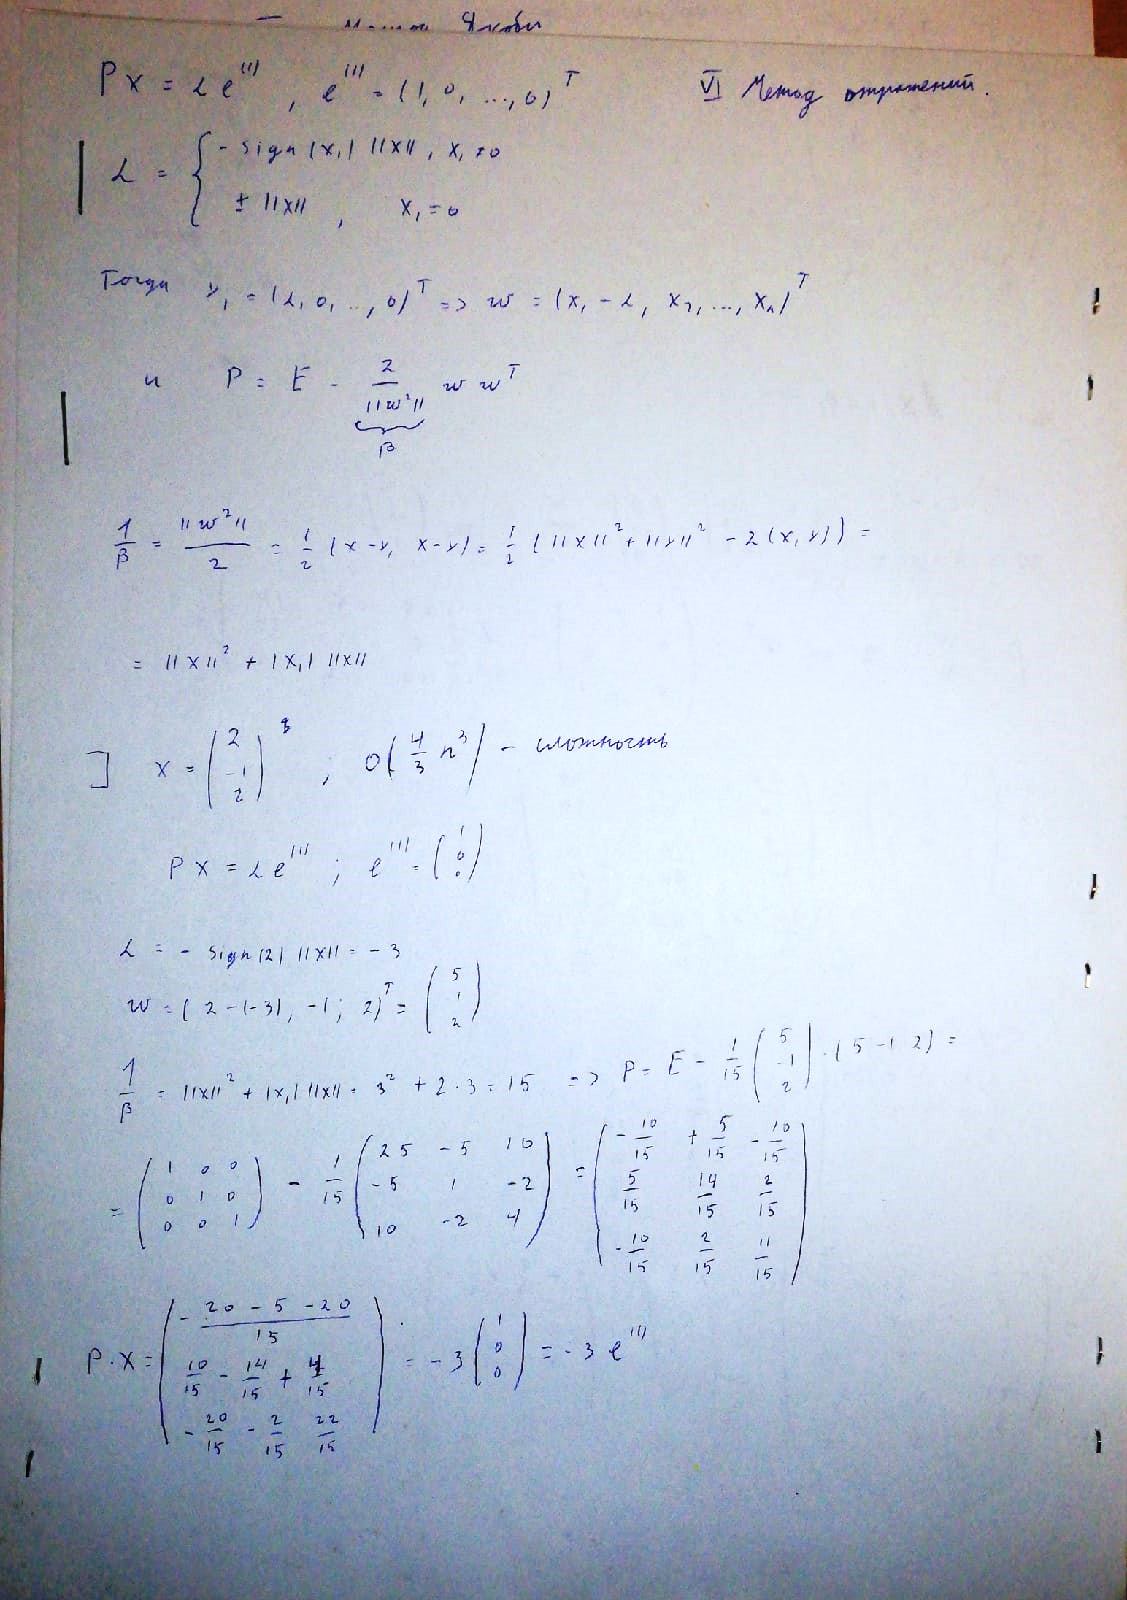 Якоби
Px = αe⁽¹⁾, e⁽¹⁾ = (1, 0, ..., 0)ᵀ
VI Метод отражений.
α = { - sign(x₁) ||x||, x₁ ≠ 0
± ||x||, x₁ = 0
Тогда y₁ = (α, 0, ..., 0)ᵀ => w = (x₁ - α, x₂, ..., xₙ)ᵀ
и P = E - 2/||w²|| w wᵀ
β
1/β = ||w²||/2 = 1/2 (x - y, x - y) = 1/2 (||x||² + ||y||² - 2(x, y)) =
= ||x||² + |x₁| ||x||
] x = (2 -1 2) ; O(4/3 n³) - сложность
Px = αe⁽¹⁾ ; e⁽¹⁾ = (1 0 0)
α = - sign(2) ||x|| = -3
w = (2 - (-3), -1; 2)ᵀ = (5 1 2)
1/β = ||x||² + |x₁| ||x|| = 3² + 2·3 = 15 => P = E - 1/15 (5 -1 2) · (5 -1 2) =
= (1 0 0 - 1/15 (25 -5 10 = (-10/15 +5/15 -10/15
0 1 0 -5 1 -2 5/15 14/15 2/15
0 0 1) 10 -2 4) -10/15 2/15 11/15)
P·x = (- 20 - 5 - 20/15
10/15 - 14/15 + 4/15 = -3 (1 0 0) = -3 e⁽¹⁾
-20/15 - 2/15 22/15)